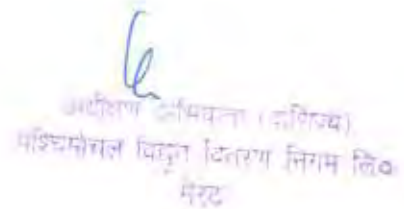 अधीक्षण अभियन्ता (वाणिज्य)
पश्चिमांचल विद्युत वितरण निगम लि०
मेरठ